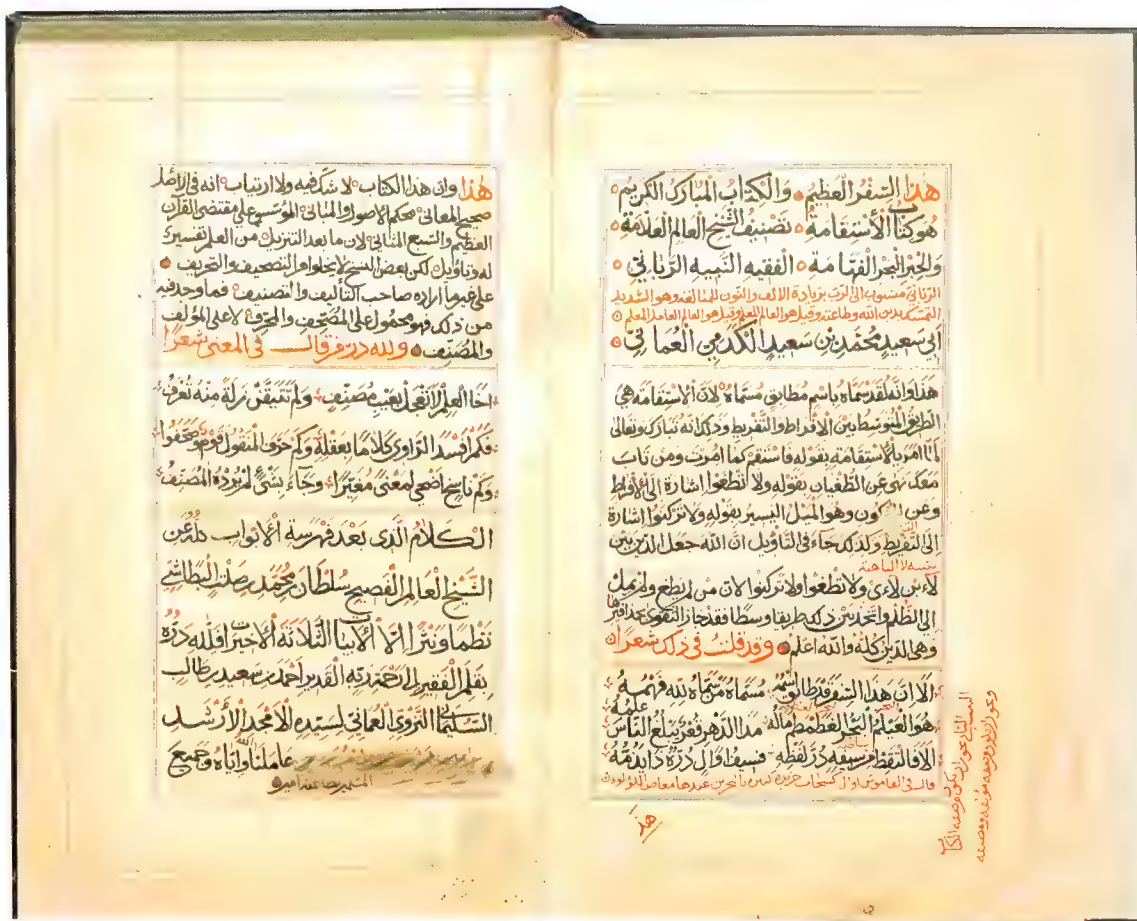 هذا السِّفْرُ الْعَظِيمُ وَالْكِتَابُ الْمُبَارَكُ الْكَرِيمُ
هُوَ كِتَابُ الْأِسْتِقَامَةِ تَصْنِيفُ الشَّيْخِ الْعَالِمِ الْعَلَّامَةِ
وَالْحَبْرِ الْبَحْرِ الْفَهَّامَةِ الْفَقِيهِ النَّبِيهِ الرَّبَّانِي
الرباني منسوب الى الرب بزيادة الالف والنون للمبالغة وهو الشديد
التمسك بدين الله وطاعته وقيل هو العالم المعلم وقيل هو العالم العامل المعلم
أَبِي سَعِيدٍ مُحَمَّدِ بْنِ سَعِيدٍ الْكُدَمِي الْعُمَانِي
هذا وانه لقد سماه باسم مطابق مسماه لان الاستقامة هي
الطريق المتوسط بين الافراط والتفريط وذلك انه تبارك وتعالى
لما امر بالاستقامة بقوله فاستقم كما امرت ومن تاب
معك نهى عن الطغيان بقوله ولا تطغوا اشارة الى الافراط
وعن الركون وهو الميل اليسير بقوله ولا تركنوا اشارة
الى التفريط ولذلك جاء في التأويل ان الله جعل الدين بين
لاءين لاء ولا تطغوا ولا تركنوا لان من لم يطغ ولم يمل
الى الظلم واتخذ بين ذلك طريقا وسطا فقد حاز التقوى
وهي الدين كله والله اعلم وقد قلت في ذلك شعرا
الا ان هذا السفر قد طابق اسمه مسماه من سماه لله فهمه
هو العيلم البحر الغطمطم ماله مدا الدهر قعر يبلغ الناس علمه
الا فالتقط من سيفه در لفظه فسيف اوال دره
قال في القاموس اوال كسحاب جزيرة كبيرة بالبحرين عندها مغاص اللؤلؤ
هذا
هذا وان هذا الكتاب لا شك فيه ولا ارتياب انه في الاصل
صحيح المعاني محكم الاصول والمباني المؤسس على مقتضى القران
العظيم والسبع المثاني لان ما بعد التنزيل من العلم تفسير
له وتاويل لكن بعض النسخ لا يخلوا من التصحيف والتحريف
على غير ما اراده صاحب التأليف والتصنيف فما وجد فيه
من ذلك فهو محمول على المصحف والمحرف لا على المؤلف
والمصنف ولله در من قال في المعنى شعرا
اخا العلم لا تعجل بعيب مصنف ولم تتيقن زلة منه تعرف
فكم افسد الراوي كلاما بعقله وكم حرف المنقول قوم وصحفوا
وكم ناسخ اضحى لمعنى مغيرا وجاء بشئ لم يرده المصنف
الكلام الذي بعد فهرسة الابواب عن
الشيخ العالم الفصيح سلطان بن محمد بن صلت البطاشي
نظما ونثرا الا الابيات الثلاثة الاخيرة فلله دره
بقلم الفقير الى رحمة ربه القدير احمد بن سعيد بن طالب
السليماني النزوي العماني لسيده الامجد الارشد
عاملنا الله واياه وجميع